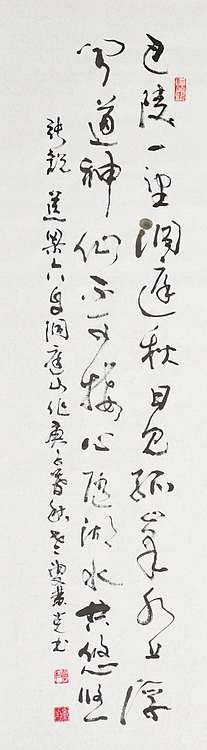 巴陵一望洞庭秋日見孤峰水上浮
聞道神仙不可接心隨湖水共悠悠
張說 洞庭山作庚子暮秋